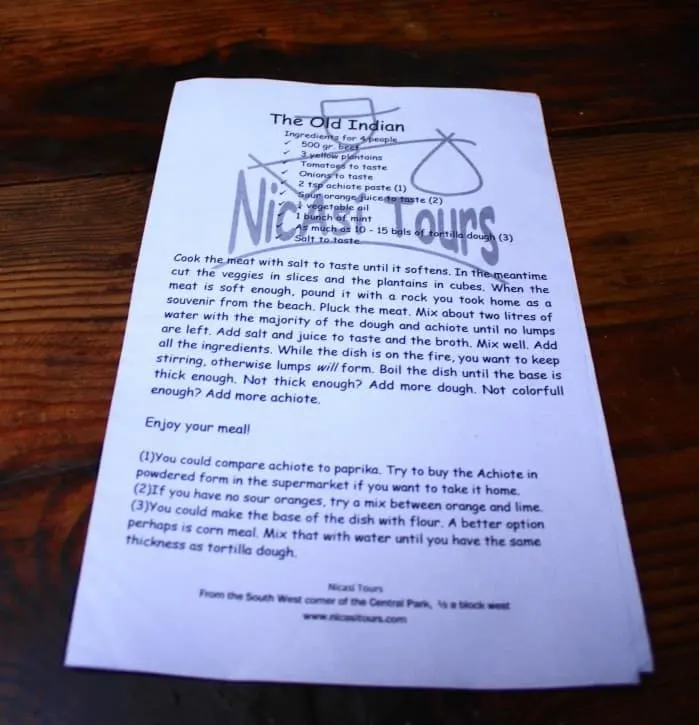 The Old Indian
Ingredients for 4 people
✓ 500 gr. beef
✓ 3 yellow plantains
✓ Tomatoes to taste
✓ Onions to taste
✓ 2 tsp achiote paste (1)
✓ Sour orange juice to taste (2)
✓ vegetable oil
✓ 1 bunch of mint
✓ As much as 10 - 15 bals of tortilla dough (3)
✓ Salt to taste
Nicasi Tours
Cook the meat with salt to taste until it softens. In the meantime
cut the veggies in slices and the plantains in cubes. When the
meat is soft enough, pound it with a rock you took home as a
souvenir from the beach. Pluck the meat. Mix about two litres of
water with the majority of the dough and achiote until no lumps
are left. Add salt and juice to taste and the broth. Mix well. Add
all the ingredients. While the dish is on the fire, you want to keep
stirring, otherwise lumps will form. Boil the dish until the base is
thick enough. Not thick enough? Add more dough. Not colorfull
enough? Add more achiote.
Enjoy your meal!
(1)You could compare achiote to paprika. Try to buy the Achiote in
powdered form in the supermarket if you want to take it home.
(2)If you have no sour oranges, try a mix between orange and lime.
(3)You could make the base of the dish with flour. A better option
perhaps is corn meal. Mix that with water until you have the same
thickness as tortilla dough.
Nicasi Tours
From the South West corner of the Central Park, ½ a block west
www.nicasitours.com